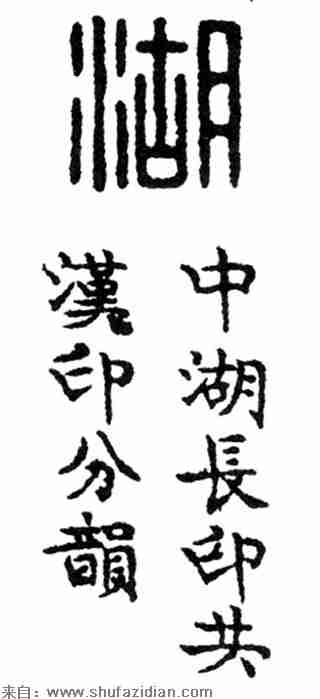 湖
中湖長印共
漢印分韻
来自：www.shufazidian.com